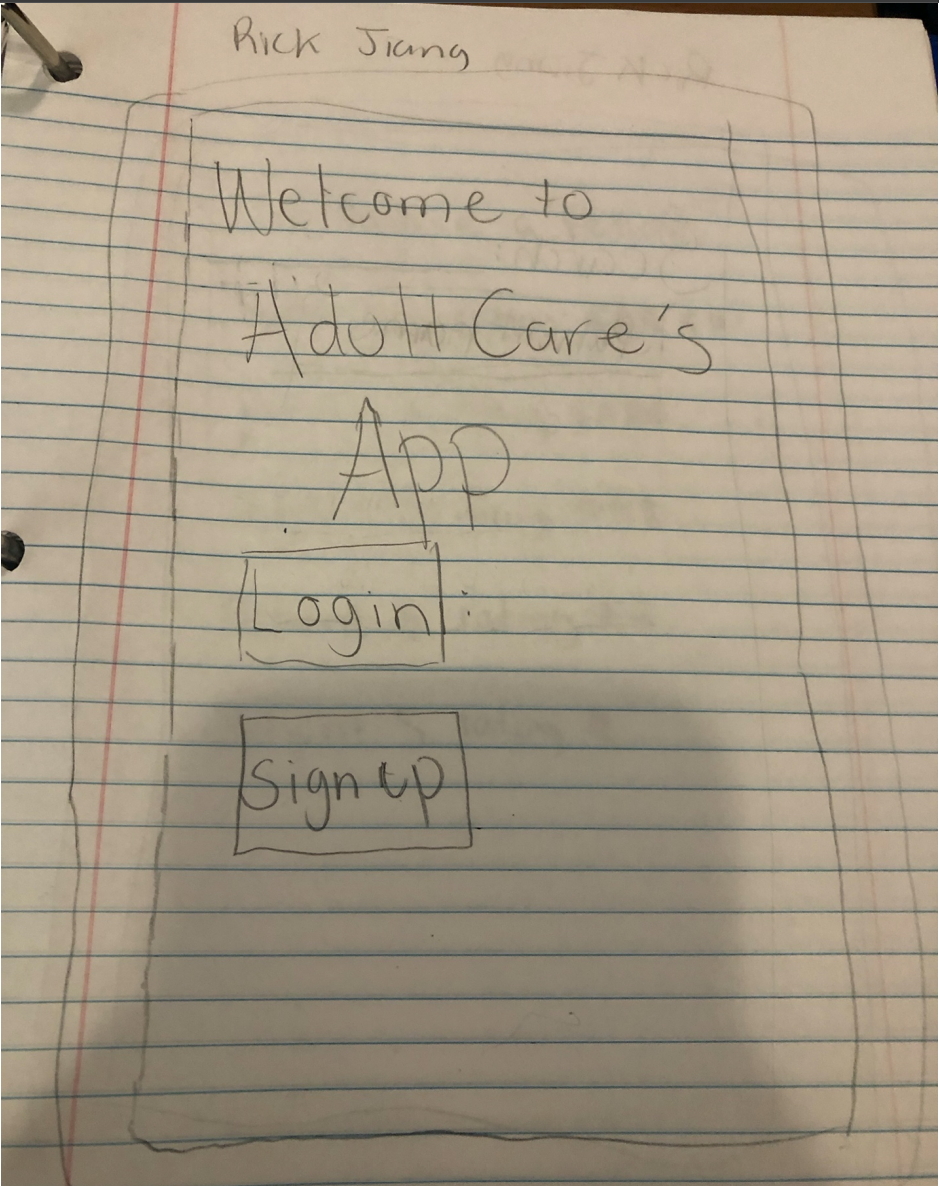 Rick Jiang
Welcome to
Adult Care's
App
Login :
Sign up